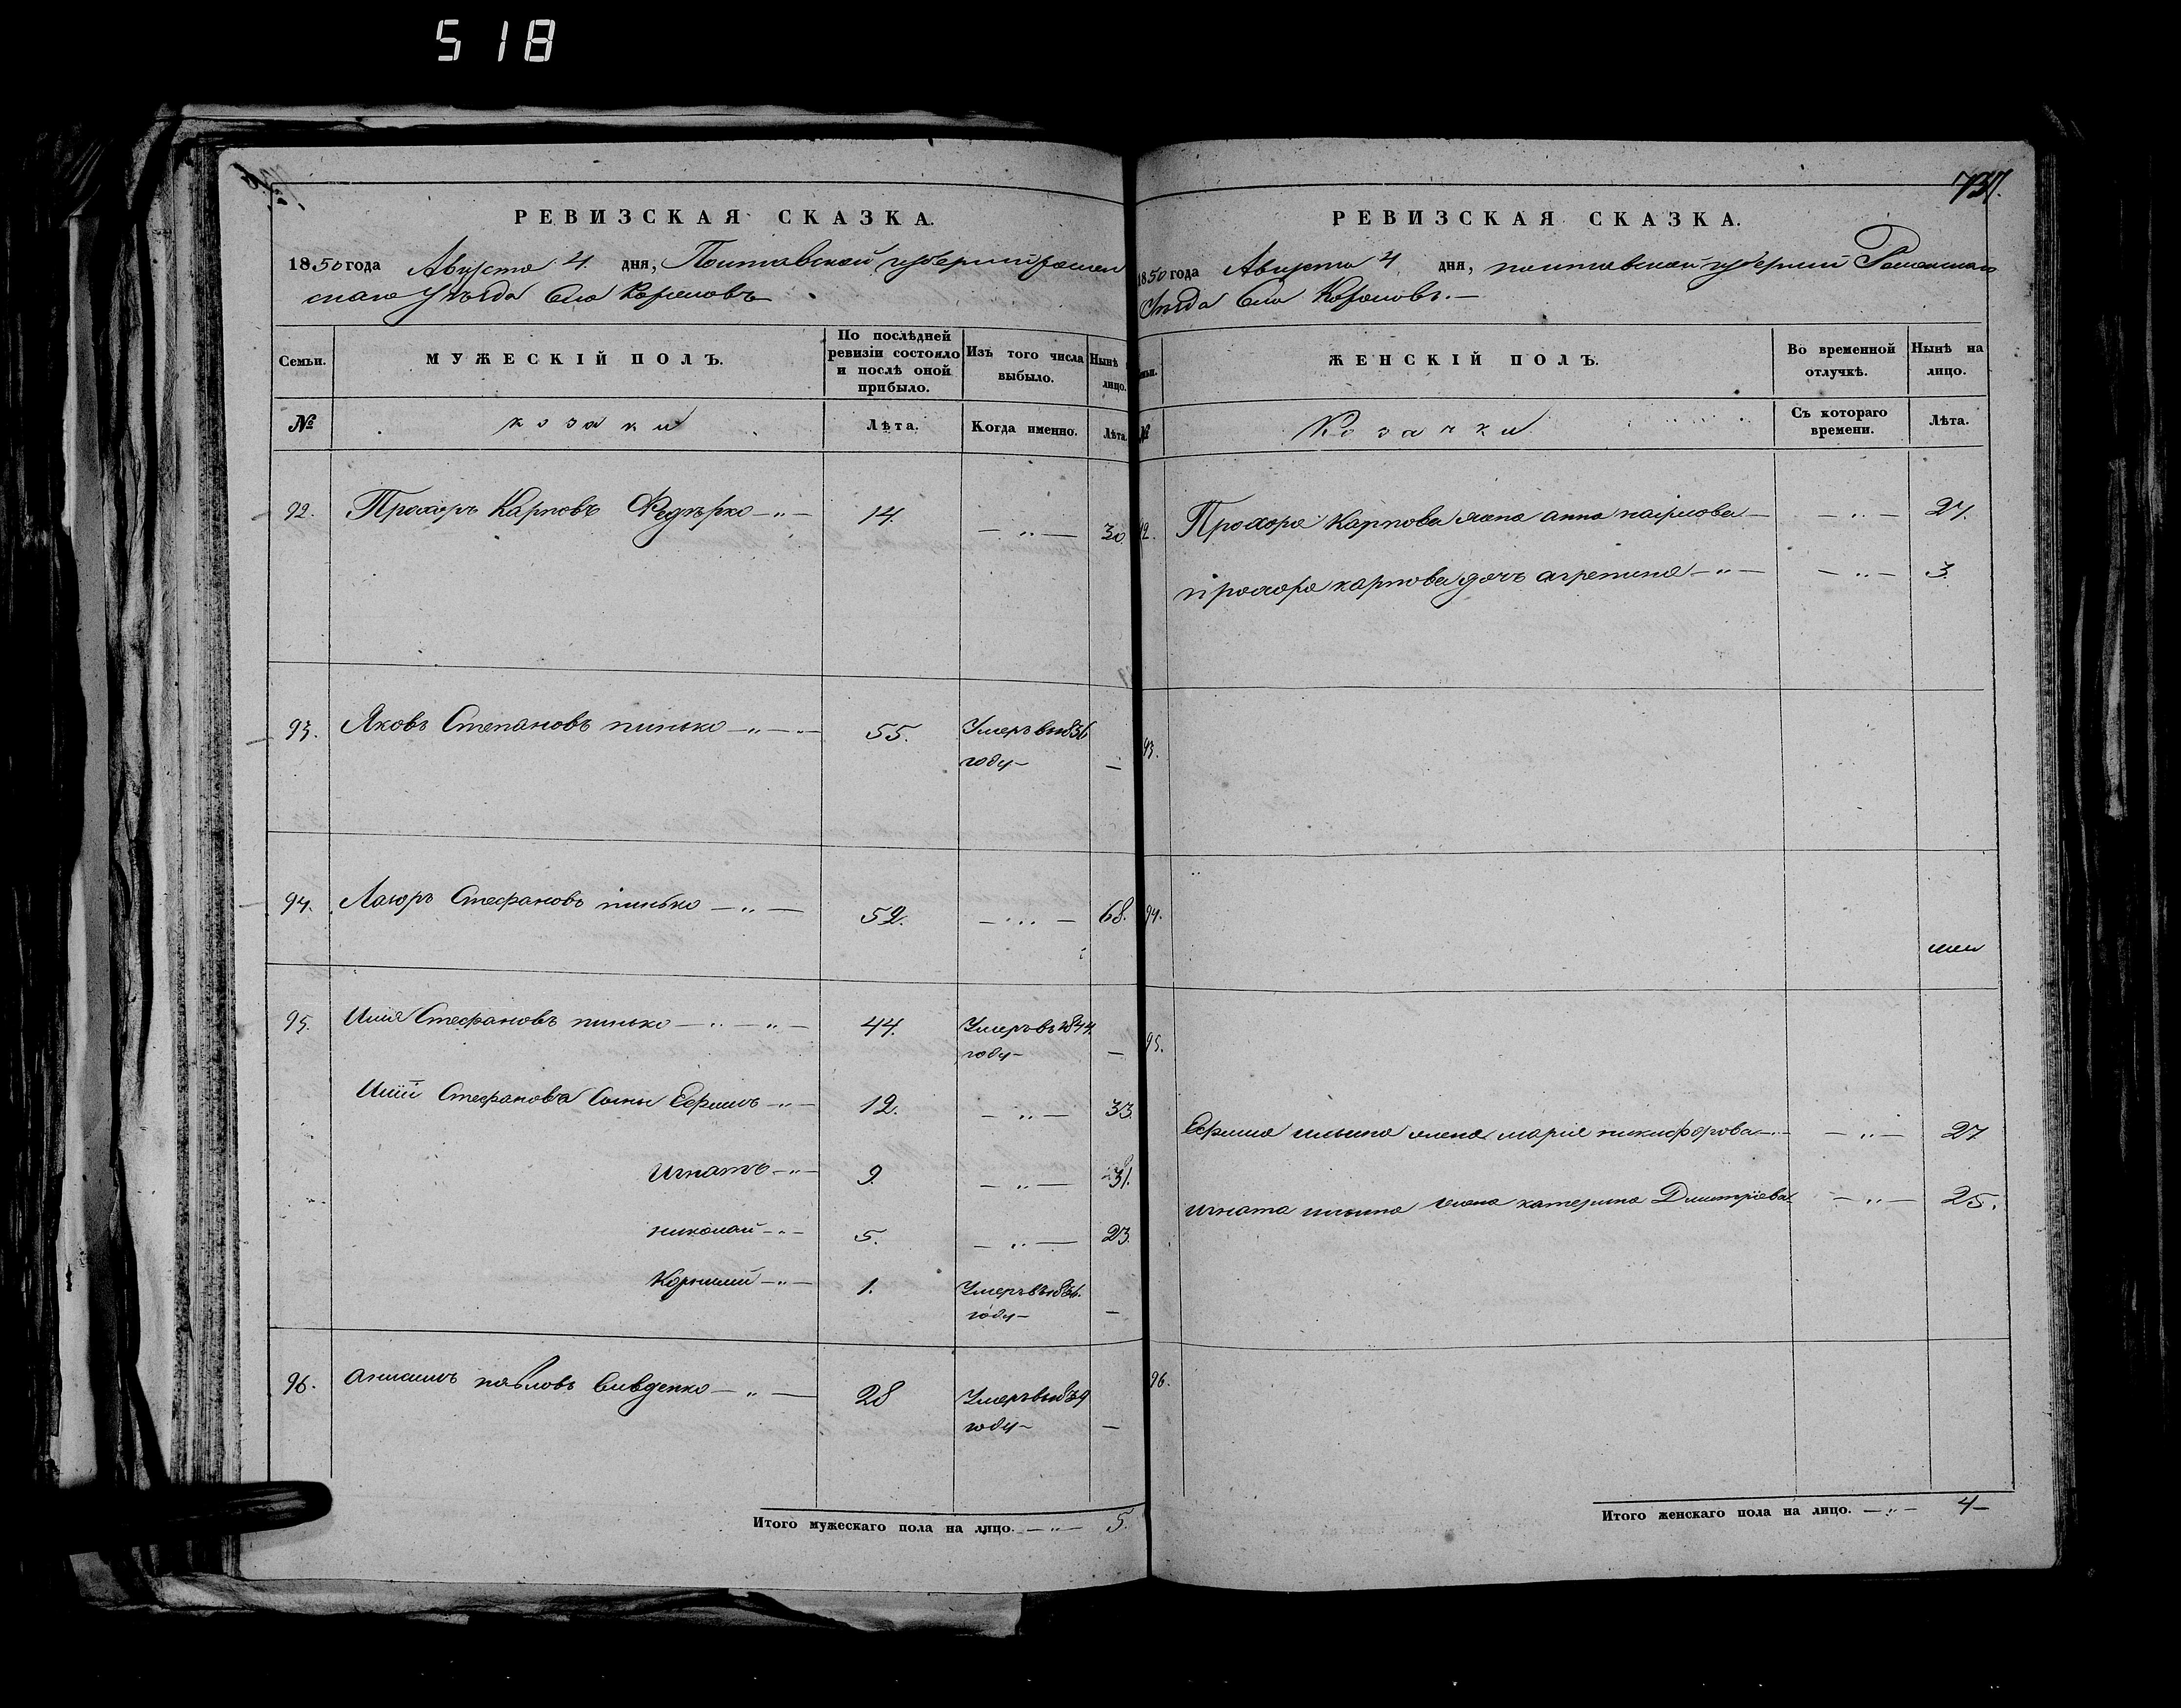 518
РЕВИЗСКАЯ СКАЗКА.
1850 года Августа 4. дня, Полтавской губернии ромен
скаго Уѣзда Села
Семьи.
МУЖЕСКІЙ ПОЛЪ.
По послѣдней ревизіи состояло и послѣ оной прибыло.
Изъ того числа выбыло.
Нынѣ лицо.
№
козаки
Лѣта.
Когда именно.
Лѣта.
92. Прохоръ Карповъ —"— 14. —"— 30.
93. Яковъ Степановъ пинько —"— 55. Умеръ в 1836
году— —
94. Стефановъ пинько —"— 52. —"— 68.
95. Илія Стефановъ пинько —"—"— 44. Умеръ въ 1844.
году— —
Иліи Стефанова Сыны Ефимъ —"— 12. —"— 33.
Игнатъ —"— 9. —"— 31.
николай —"— 5. —"— 23.
Корнилій —"— 1. Умеръ въ 1836.
году— —
96. павловъ —"— 28 Умеръ в 1839
году— —
Итого мужескаго пола на лицо. —"— 5.
737.
РЕВИЗСКАЯ СКАЗКА.
1850 года Августа 4 дня, полтавской губерніи Роменскаго
Уѣзда Села
ЖЕНСКІЙ ПОЛЪ.
Во временной отлучкѣ.
Нынѣ на лицо.
№
Козачки
Съ котораго времени.
Лѣта.
92. Прохора Карпова жена анна — —"— 27.
прохора карпова дочь агрепина —"— —"— 3.
93.
94.
95.
Ефима ильина жена марія никифорова —"— —"— 27
игната ильина жена катерина Дмитріева —"— 25.
96.
Итого женскаго пола на лицо. —"— 4—